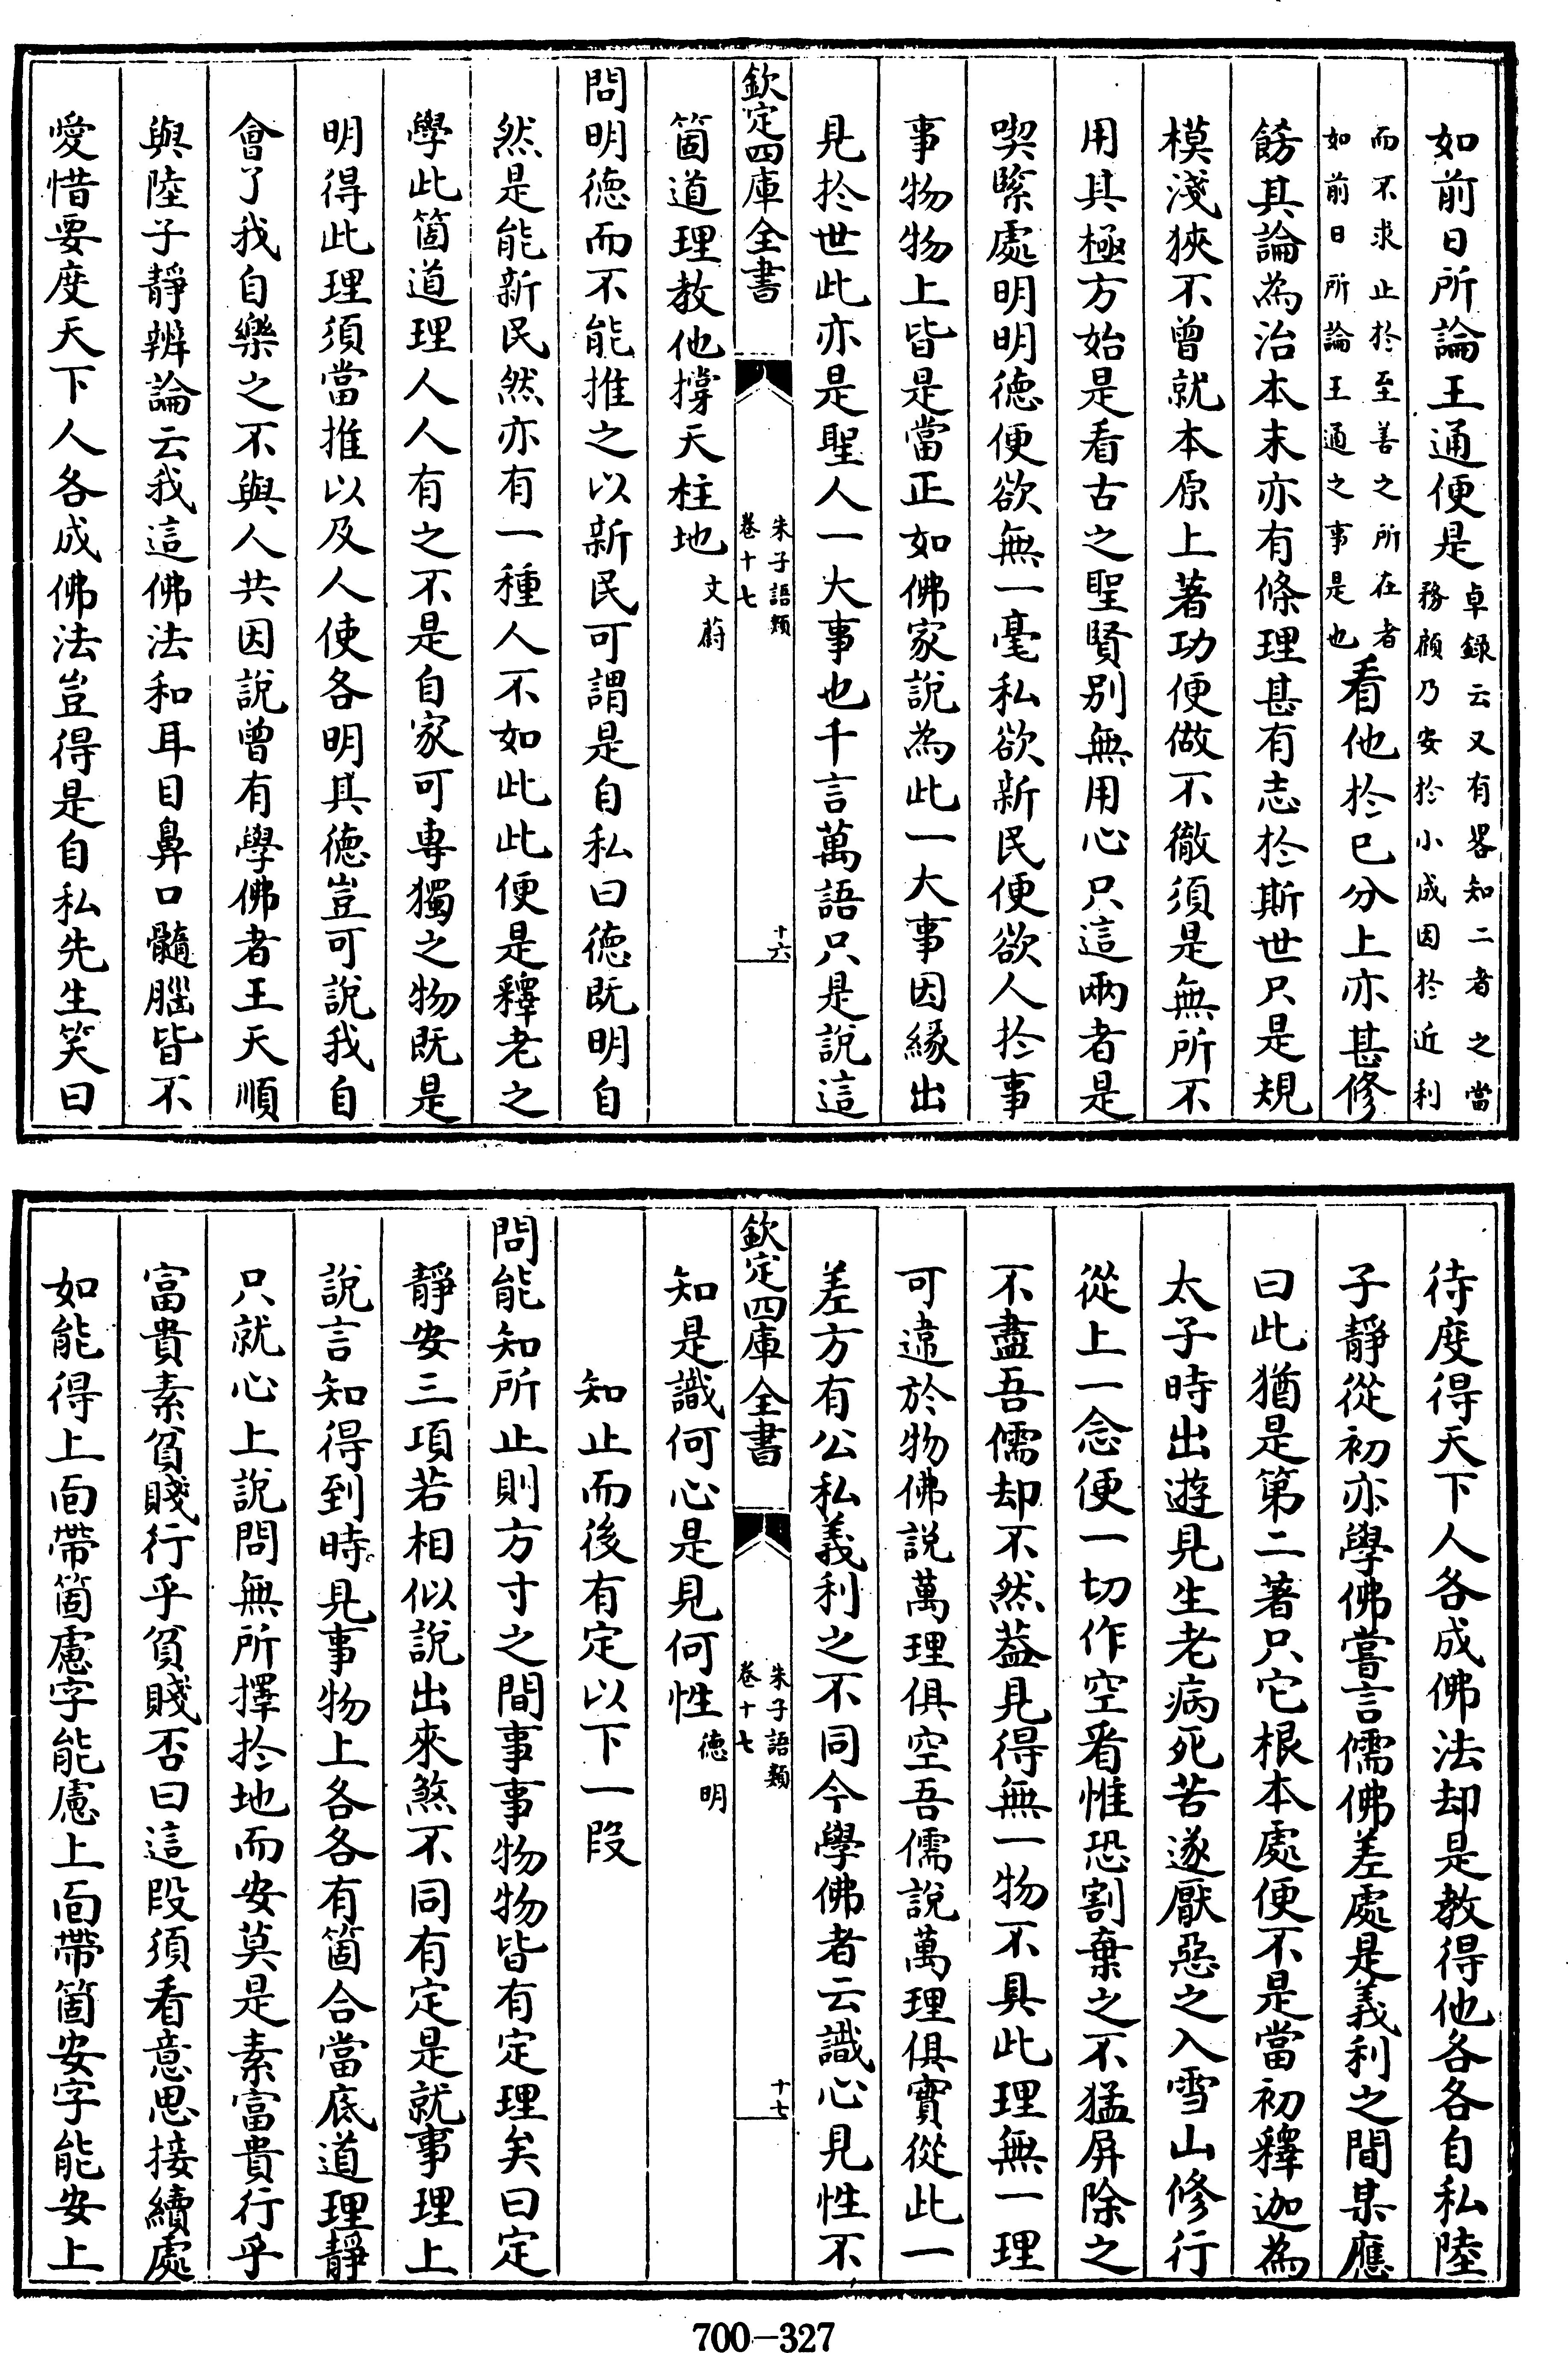 如前日所論王通便是卓録云又有畧知二者之當務顧乃安於小成因於近利
而不求止於至善之所在者如前日所論王通之事是也看他於已分上亦甚修
飭其論為治本末亦有條理甚有志於斯世只是規
模淺狹不曾就本原上著功便做不徹須是無所不
用其極方始是看古之聖賢别無用心只這兩者是
喫緊處明明徳便欲無一毫私欲新民便欲人於事
事物物上皆是當正如佛家説為此一大事因緣出
見於世此亦是聖人一大事也千言萬語只是説這
欽定四庫全書
朱子語類
卷十七
十六
箇道理教他撐天柱地文蔚
問明徳而不能推之以新民可謂是自私曰徳既明自
然是能新民然亦有一種人不如此此便是釋老之
學此箇道理人人有之不是自家可專獨之物既是
明得此理須當推以及人使各明其徳豈可説我自
會了我自樂之不與人共因説曾有學佛者王天順
與陸子靜辨論云我這佛法和耳目鼻口髓腦皆不
愛惜要度天下人各成佛法豈得是自私先生笑曰
待度得天下人各成佛法却是教得他各各自私陸
子靜從初亦學佛嘗言儒佛差處是義利之間某應
曰此猶是第二著只它根本處便不是當初釋迦為
太子時出遊見生老病死苦遂厭惡之入雪山修行
從上一念便一切作空看惟恐割棄之不猛屏除之
不盡吾儒却不然葢見得無一物不具此理無一理
可違於物佛説萬理俱空吾儒説萬理俱實從此一
差方有公私義利之不同今學佛者云識心見性不
欽定四庫全書
朱子語類
卷十七
十七
知是識何心是見何性徳明
知止而後有定以下一段
問能知所止則方寸之間事事物物皆有定理矣曰定
靜安三項若相似説出來煞不同有定是就事理上
説言知得到時見事物上各各有箇合當底道理靜
只就心上説問無所擇於地而安莫是素富貴行乎
富貴素貧賤行乎貧賤否曰這段須看意思接續處
如能得上面帶箇慮字能慮上面帶箇安字能安上
700-327